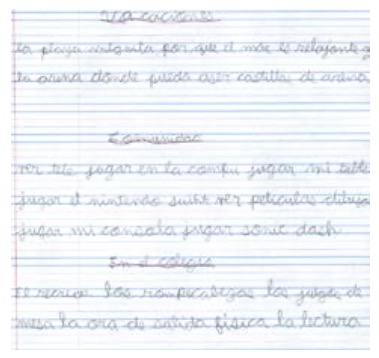 Vacaciones
la playa megusta por que el mar es relajante y
la arena donde puedo aser castillos de arena
Comunidad
ver tele jugar en la compu jugar mi table
jugar el nintendo swiht ver peliculas dibujar
jugar mi consola jugar sonic dash
En el colegio
el recreo los rompecabezas los juegos de
mesa la ora de salida física la lectura